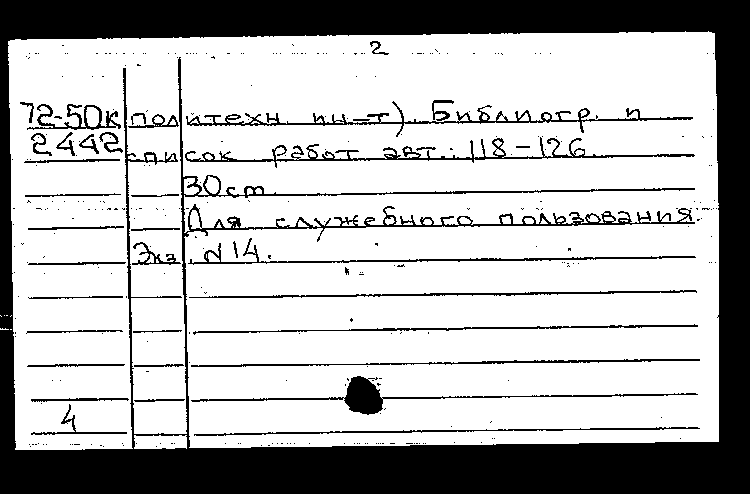 2
72-50к политехн. ин-т). Библиогр. и
2442 список работ авт.: 118-126
30см
Для служебного пользования.
Экз. N14.
4